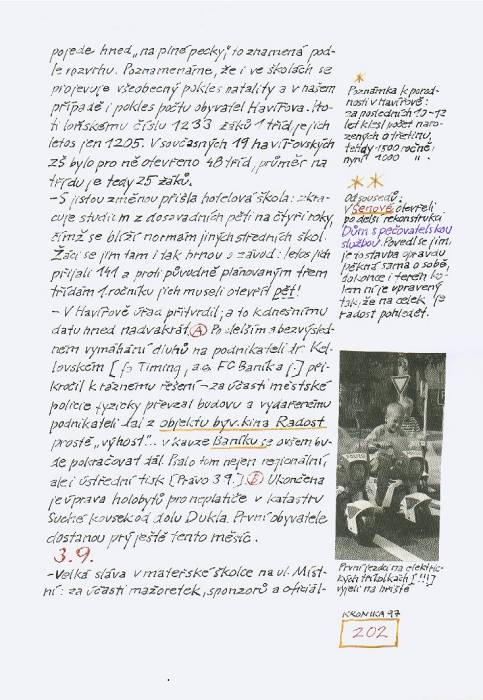 pojede hned „na plné pecky", to znamená pod-
le rozvrhu. Poznamenejme, že i ve školách se
projevuje všeobecný pokles natality a v našem
případě i pokles počtu obyvatel Havířova. Pro-
ti loňskému číslu 1233 žáků 1. tříd, je jich
letos jen 1205. V současných 19 havířovských
ZŠ bylo pro ně otevřeno 48 tříd, průměr na
třídu je tedy 25 žáků.
– S jistou změnou přišla hotelová škola: zkra-
cuje studium z dosavadních pěti na čtyři roky,
čímž se blíží normám jiných středních škol.
Žáci se jim tam i tak hrnou o závod: letos jich
přijali 141 a proti původně plánovaným třem
třídám 1. ročníku jich museli otevřít pět!
– V Havířově úřad přitvrdil; a to k dnešnímu
datu hned nadvakrát. A Po delším a bezvýsled-
ném vymáhání dluhů na podnikateli dr. Kel-
lovském [fa Timing, a.s. FC Baník aj.] při-
kročil k ráznému řešení – za účasti městské
policie fyzicky převzal budovu a vydařenému
podnikateli dal z objektu býv. kina Radost
prostě „výhost"... v kauze Baníku se ovšem bu-
de pokračovat dál. Psalo tom nejen regionální,
ale i ústřední tisk [Právo 3.9.] B Ukončena
je úprava holobytů pro neplatiče v katastru
Suché kousek od dolu Dukla. První obyvatele
dostanou prý ještě tento měsíc.
3.9.
– Velká sláva v mateřské školce na ul. Míst-
ní: za účasti mažoretek, sponzorů a oficiál-
*
Poznámka k porod-
nosti v Havířově:
za posledních 10-12
let klesl počet naro-
zených o třetinu,
tehdy 1500 ročně,
nyní 1000 " .
**
Od sousedů:
V Šenově otevřeli
po delší rekonstrukci
Dům s pečovatelskou
službou. Povedl se jim,
je to stavba opravdu
pěkná sama o sobě,
dokonce i terén ko-
lem ní je upravený
tak, že na celek je
radost pohledět.
První jezdci na elektric-
kých tříkolkách [!!!]
vyjeli na hřiště
KRONIKA 97
202